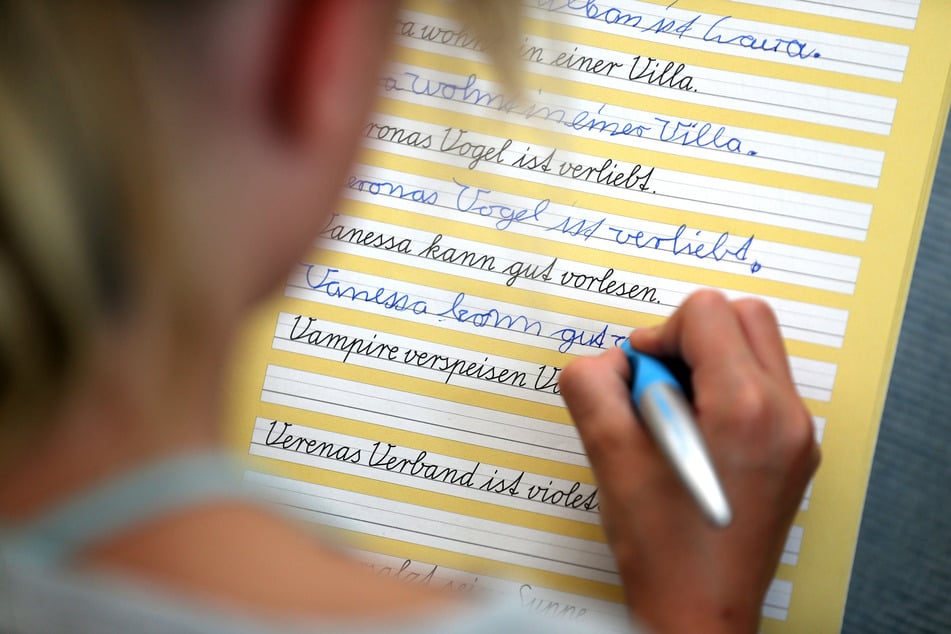 ist Laura.
wohnt in einer Villa.
wohnt in einer Villa.
ronas Vogel ist verliebt.
eronas Vogel ist verliebt.
Vanessa kann gut vorlesen.
Vanessa kann gut
Vampire verspeisen
Verenas Verband ist violet